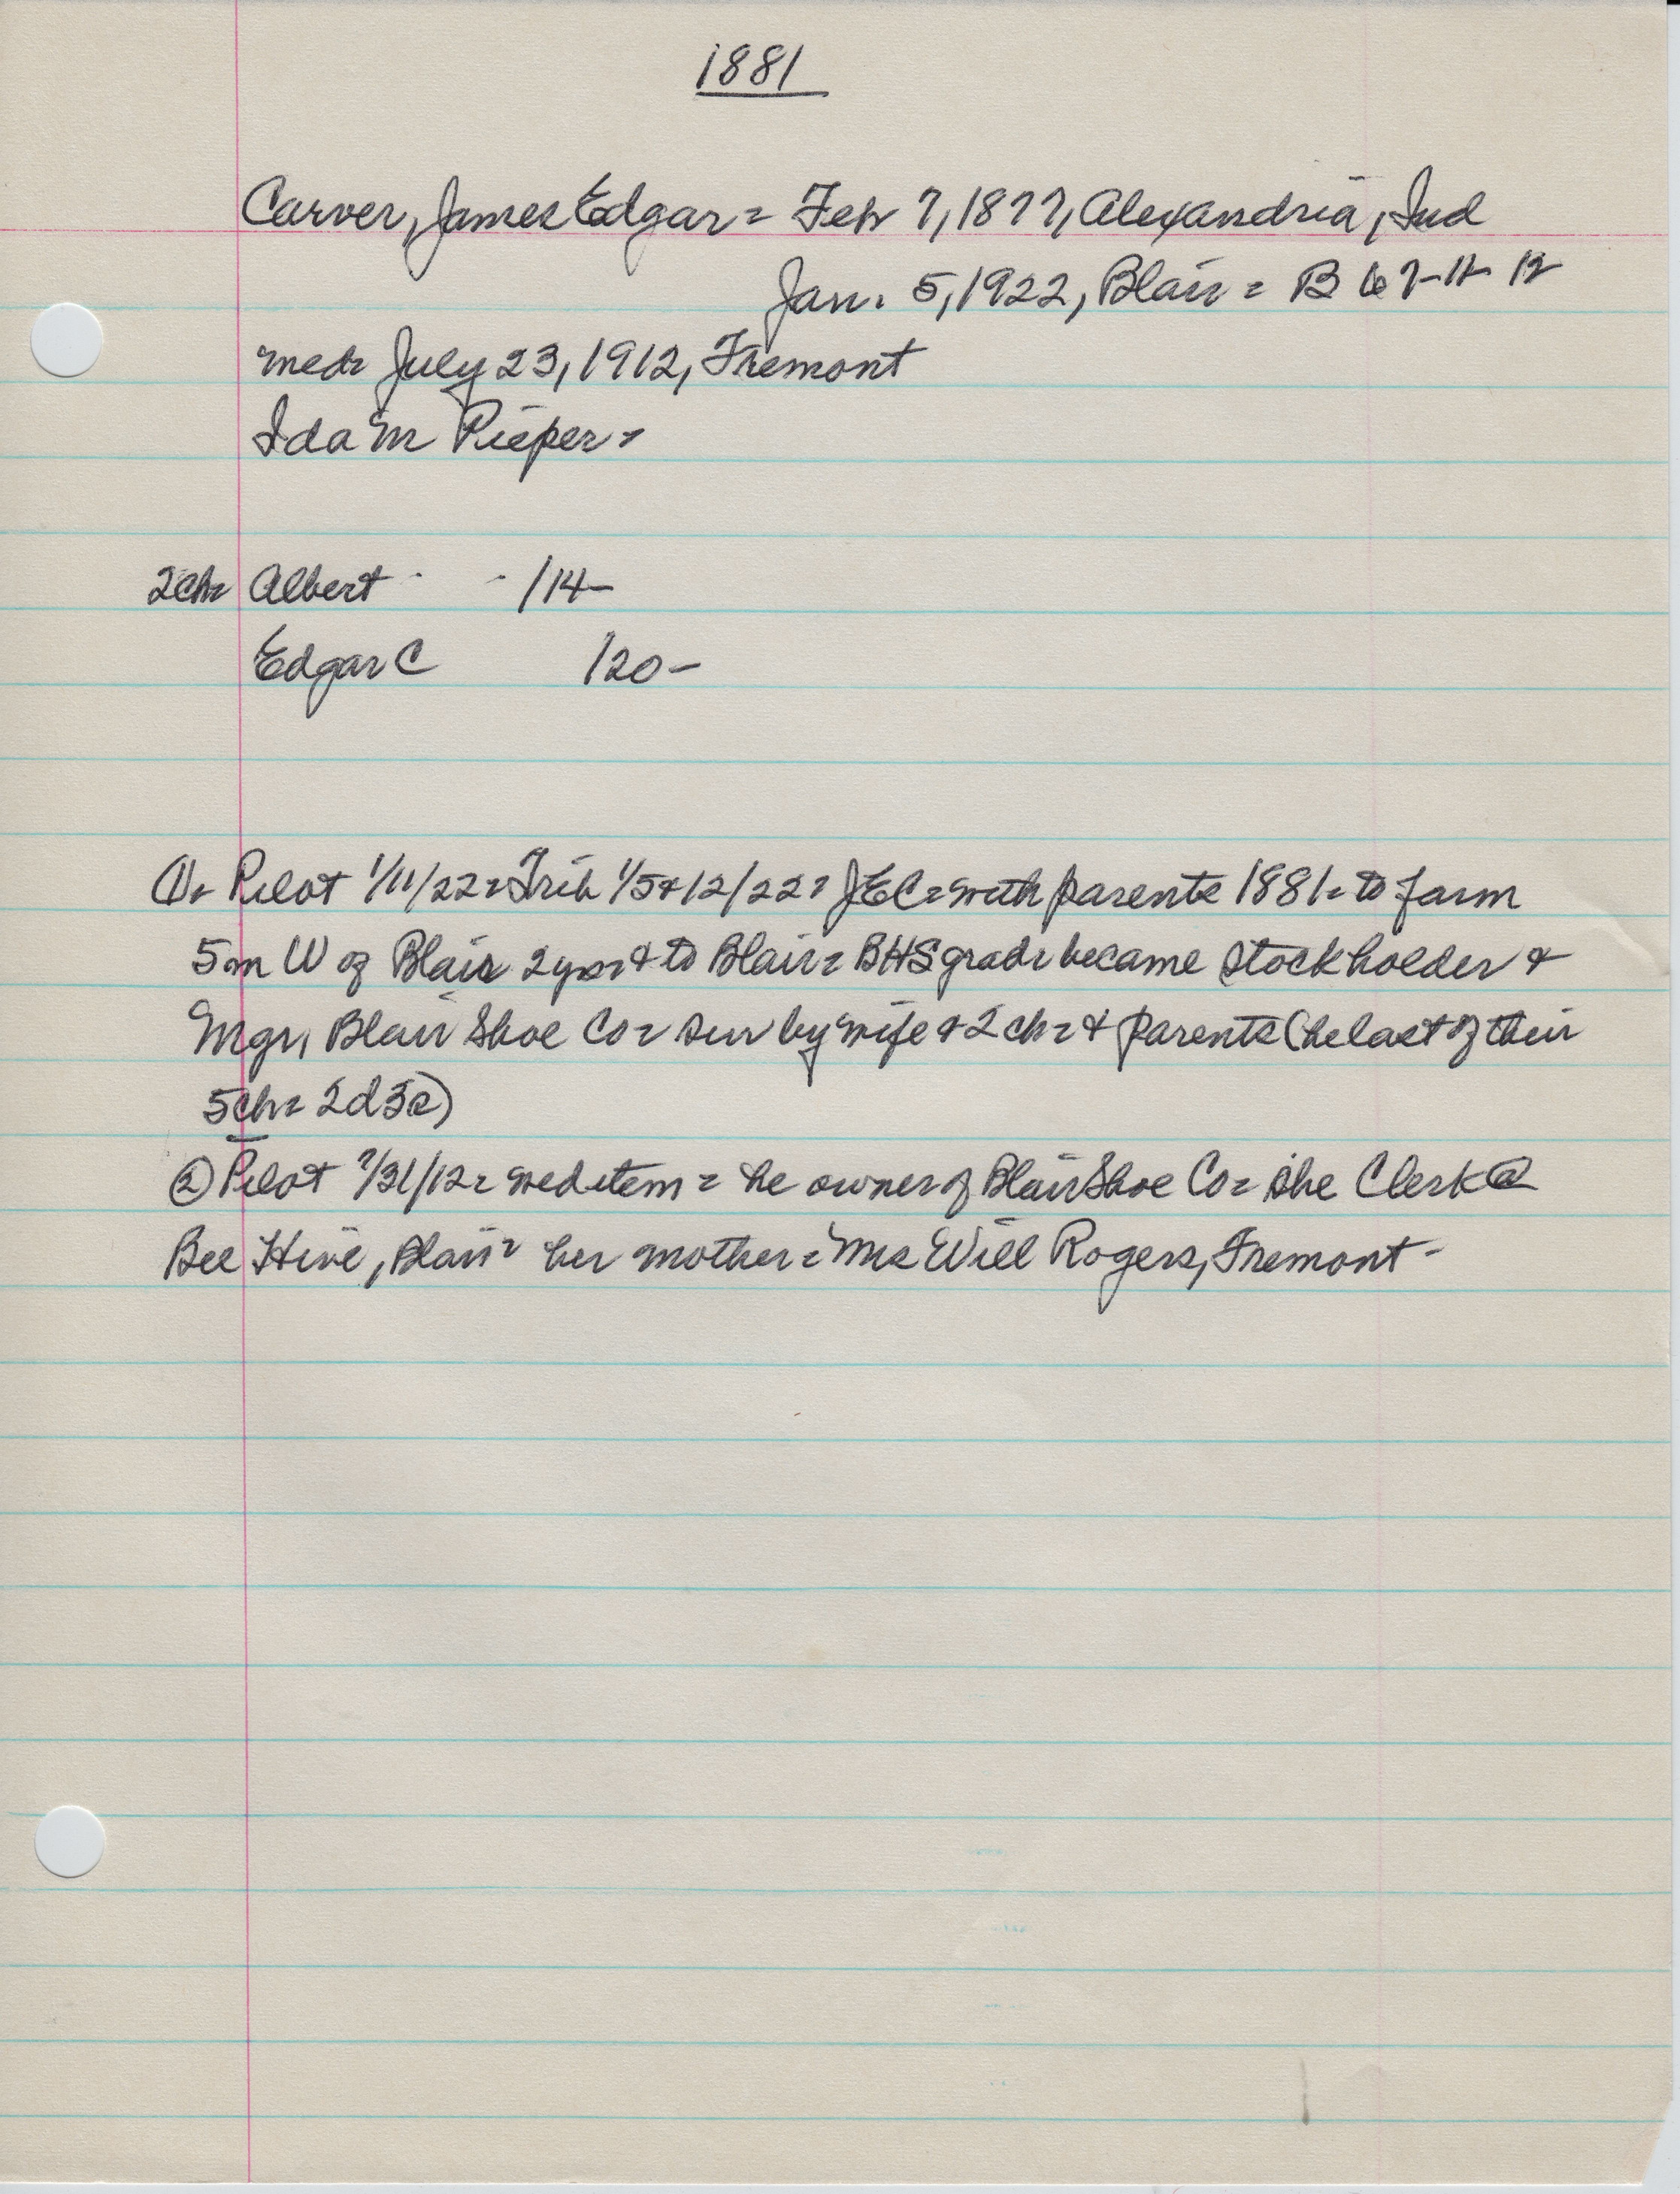 1881
Carver, James Edgar = Feb 7, 1877, Alexandria, Ind
Jan. 5, 1922, Blair = B 67-11- 12
med= July 23, 1912, Fremont
Ida M Pieper =
2ch= Albert - /14-
Edgar C /20-
① = Pilot 1/11/22 = Trib 1/5+12/22 = JEC = with parents 1881 = to farm
5 m W of Blair 2 yrs = + to Blair = BHS grad = became stockholder +
Mgr, Blair Shoe Co = sur by wife + 2 ch = + parents (he last of their
5ch = 2d3s)
② Pilot 7/31/12 = wed item = he owner of Blair Shoe Co = she Clerk @
Bee Hive, Blair = her mother = Mrs Will Rogers, Fremont -